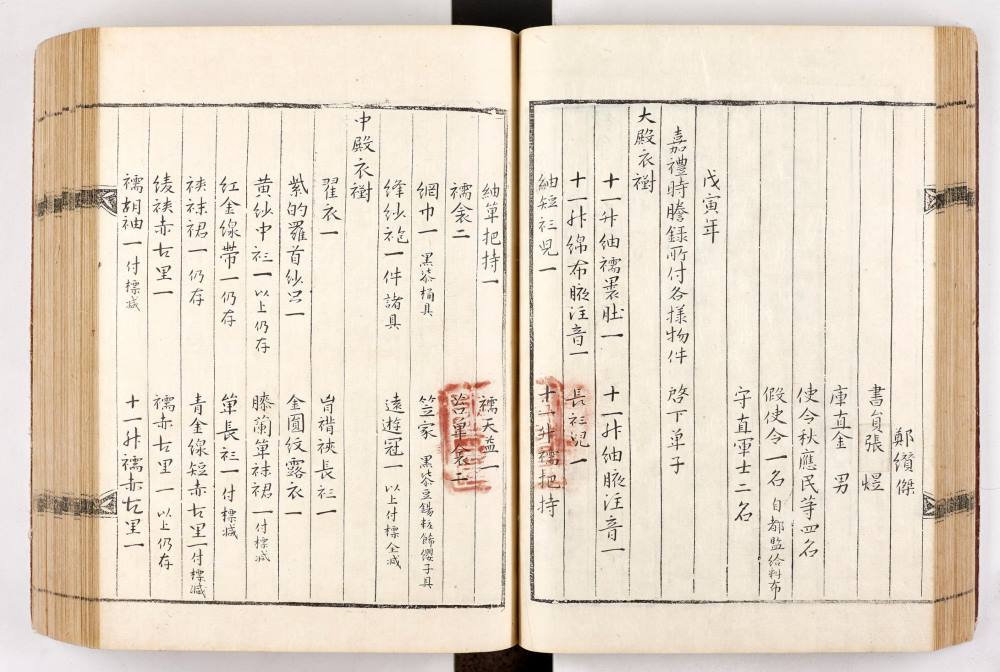 鄭纘傑
書員張 煜
庫直金 男
使令秋應民等四名
假使令一名 自都監給料布
守直軍士二名
戊寅年
嘉禮時謄錄所付各樣物件 啓下單子
大殿衣襨
十一升紬襦裹肚一 十一升紬腋注音一
十一升綿布腋注音一 長衫兒一
紬短衫兒一 十一升襦把持
紬單把持一 襦天益一
襦衾二
網巾一 黑漆桶具 笠家 黑漆豆錫粧餙纓子具
絳紗袍一件諸具 遠遊冠一 以上付標仝减
中殿衣襨
翟衣一 背楷裌長衫一
紫的羅首紗只一 金圓紋露衣一
黃紗中衫一 以上仍存 膝蘭單袜裙一 付標减
紅金線帶一 仍存 單長衫一 付標减
裌袜裙一 仍存 青金線短赤古里一 付標减
綾裌赤古里一 襦赤古里一 以上仍存
襦胡袖一 付標减 十一升襦赤古里一